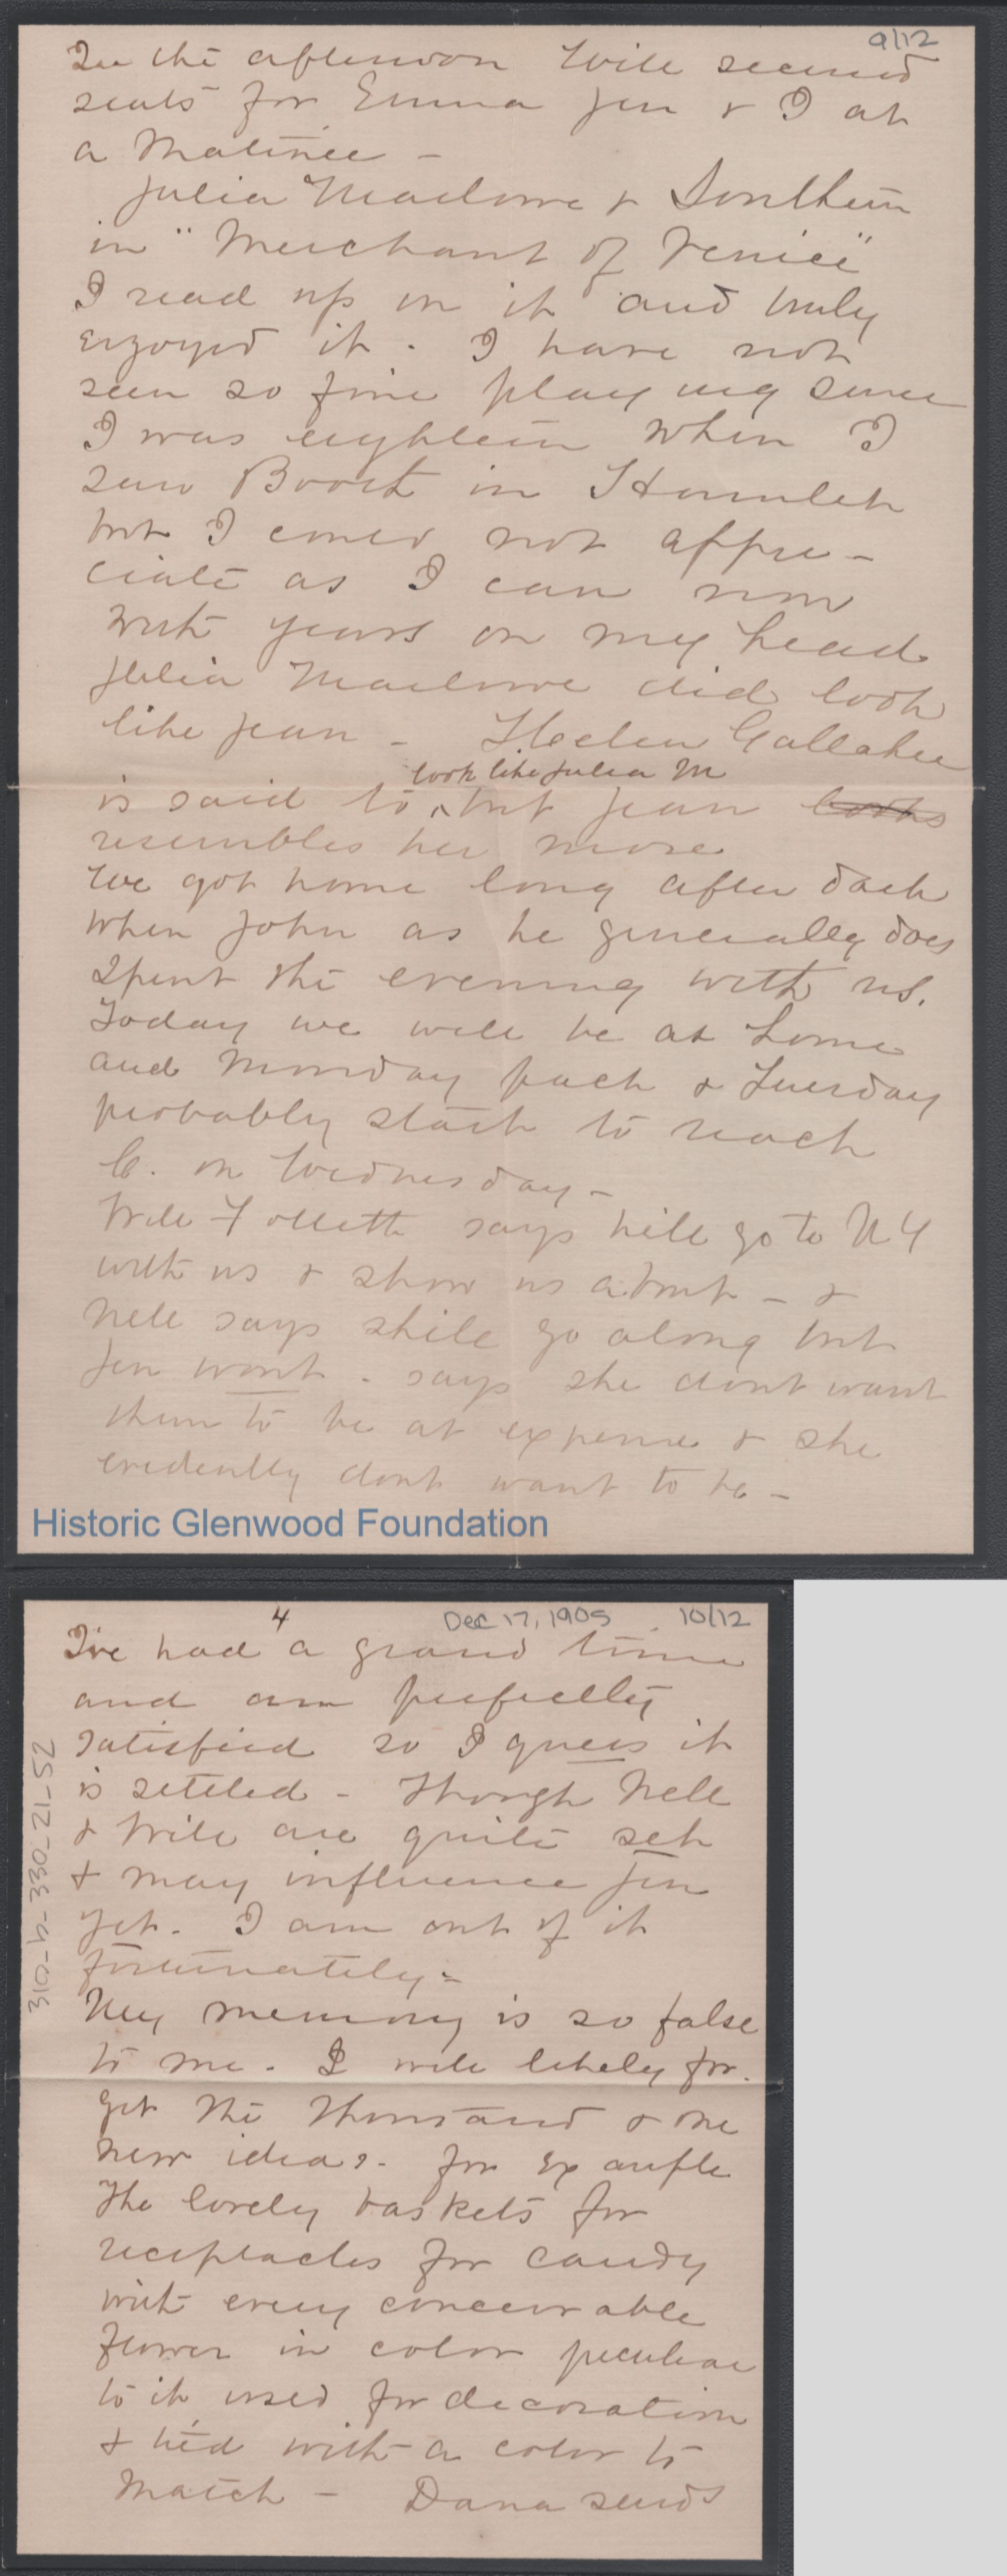 9/12
In the afternoon Will secured
seats for Emma Jen & I at
a Matinee -
Julia Marlowe & Southern
in "Merchant of Venice"
I read up on it and truly
enjoyed it. I have not
seen so fine playing since
I was eighteen when I
saw Booth in Hamlet
but I could not appre-
ciate as I can now
with years on my head
Julia Marlowe did look
like Jean - Helen Gallaher
look like Julia M
is said to ^ but Jean looks
resembles her more
We got home long after dark
when John as he generally does
spent the evening with us.
Today we will be at home
and Monday pack & Tuesday
probably start to reach
C. on Wednesday -
Will Follett says hell go to NY
with us & show us about - &
Nell says shell go along but
Jen wont - says she dont want
them to be at expense & she
evidently dont want to be -
Historic Glenwood Foundation
4 Dec 17, 1905 10/12
I've had a grand time
and am perfectly
satisfied so I guess it
is settled - Though Nell
& Will are quite set
& may influence Jen
yet. I am out of it
fortunately -
My memory is so false
to me. I will likely for-
get the thousand & one
new ideas. for example
The lovely baskets for
receptacles for candy
with every conceivable
flower in color peculiar
to it used for decoration
& tied with a color to
match - Dana sends
310-h-330-21-52